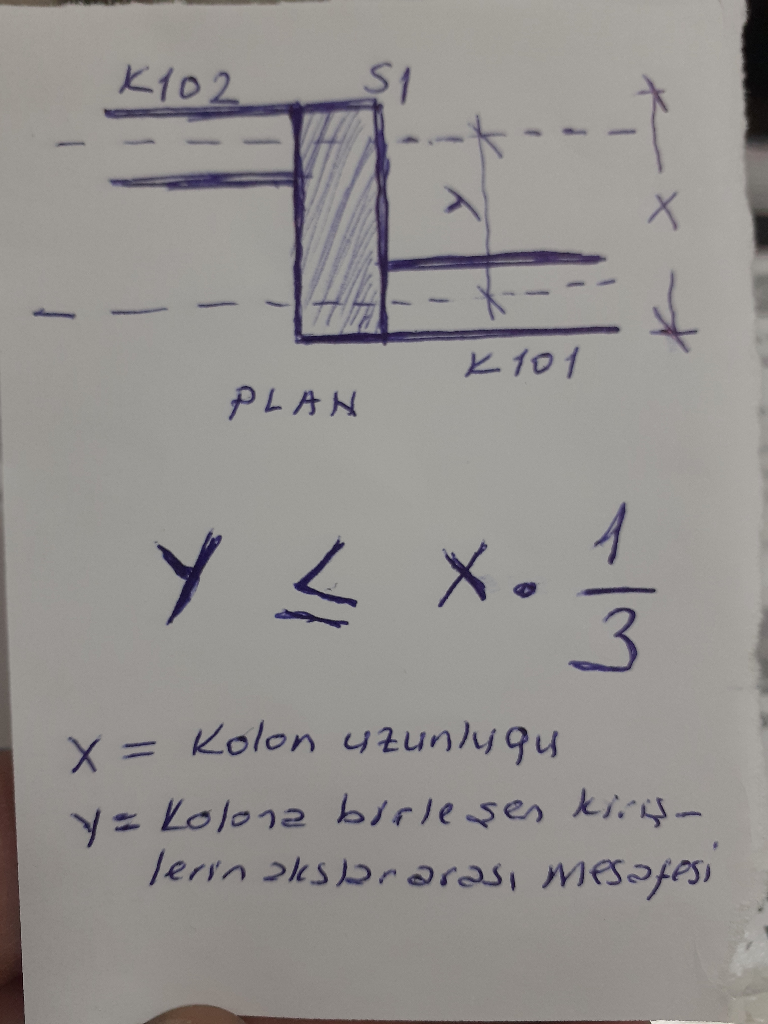 K102 S1
y
x
K101
PLAN
y ≤ x . 1/3
x = Kolon uzunlugu
y = Kolona birleşen kiriş-
lerin akslararası mesafesi